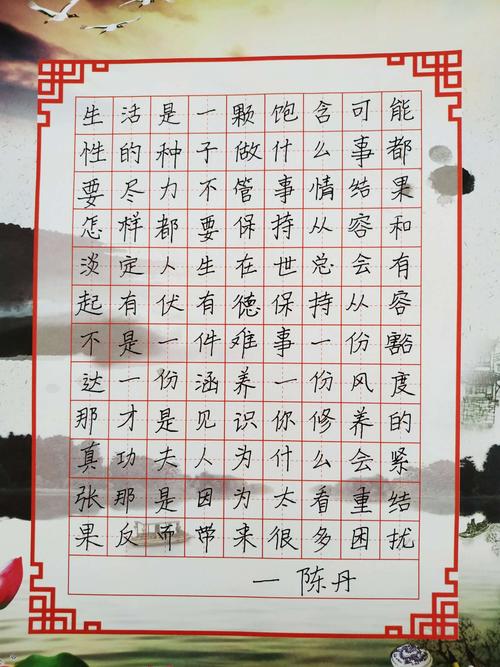 生活是一颗饱含可能
性的种子做什么事都
要尽力不管事情结果
怎样都要保持从容和
淡定人生在世总会有
起有伏有德保持从容
不是一件难事一份豁
达一份涵养一份风度
那才是见识你修养的
真功夫人为什么会紧
张那是因为太看重结
果反而带来很多困扰
一陈丹